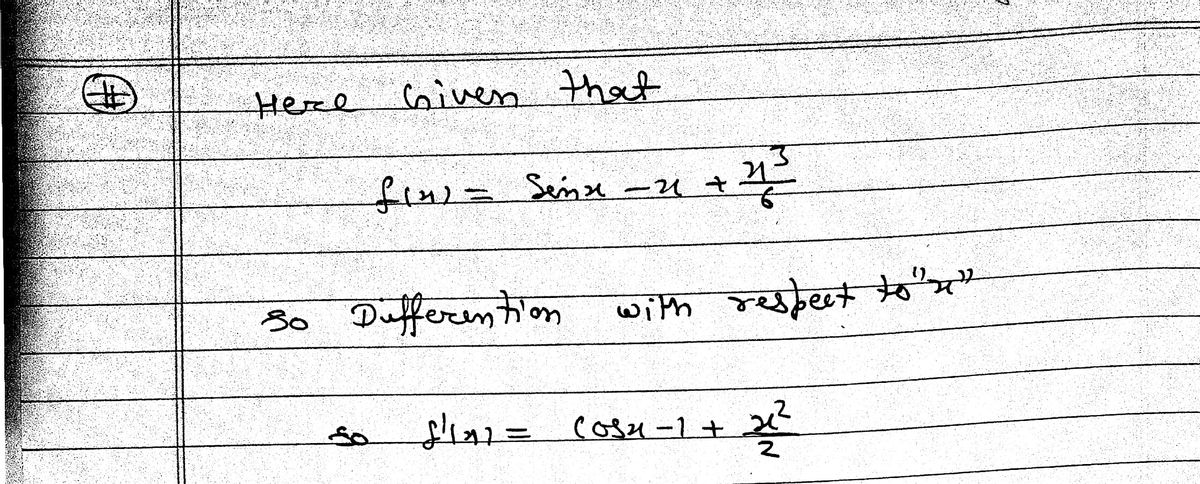 #
Here Given that
f(x) = Sinx - x + x³/6
so Differention with respect to "x"
so f'(x) = cosx - 1 + x²/2